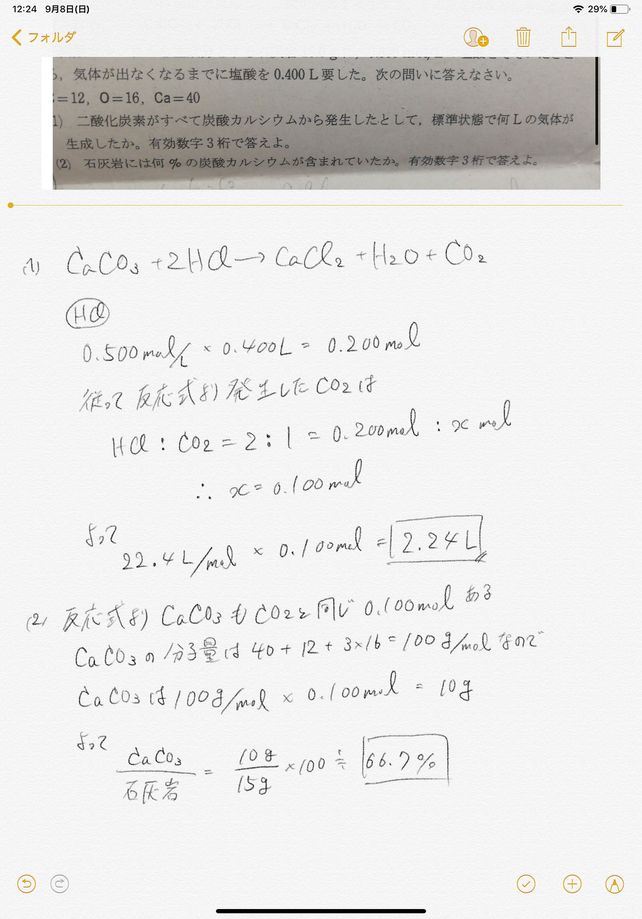 12:24 9月8日(日)
29%
フォルダ
気体が出なくなるまでに塩酸を 0.400 L 要した。次の問いに答えなさい。
=12, O=16, Ca=40
1) 二酸化炭素がすべて炭酸カルシウムから発生したとして，標準状態で何 L の気体が
生成したか。有効数字 3 桁で答えよ。
(2) 石灰岩には何 % の炭酸カルシウムが含まれていたか。有効数字 3 桁で答えよ。
(1) CaCO3 + 2HCl → CaCl2 + H2O + CO2
HCl
0.500mol/L × 0.400L = 0.200mol
従って反応式より発生したCO2は
HCl : CO2 = 2 : 1 = 0.200mol : x mol
∴ x = 0.100mol
よって
22.4L/mol × 0.100mol = 2.24L
(2) 反応式より CaCO3も CO2と同じ 0.100molある
CaCO3の分子量は 40 + 12 + 3×16 = 100g/molなので
CaCO3は 100g/mol × 0.100mol = 10g
よって
CaCO3/石灰岩 = 10g/15g ×100 ≒ 66.7%